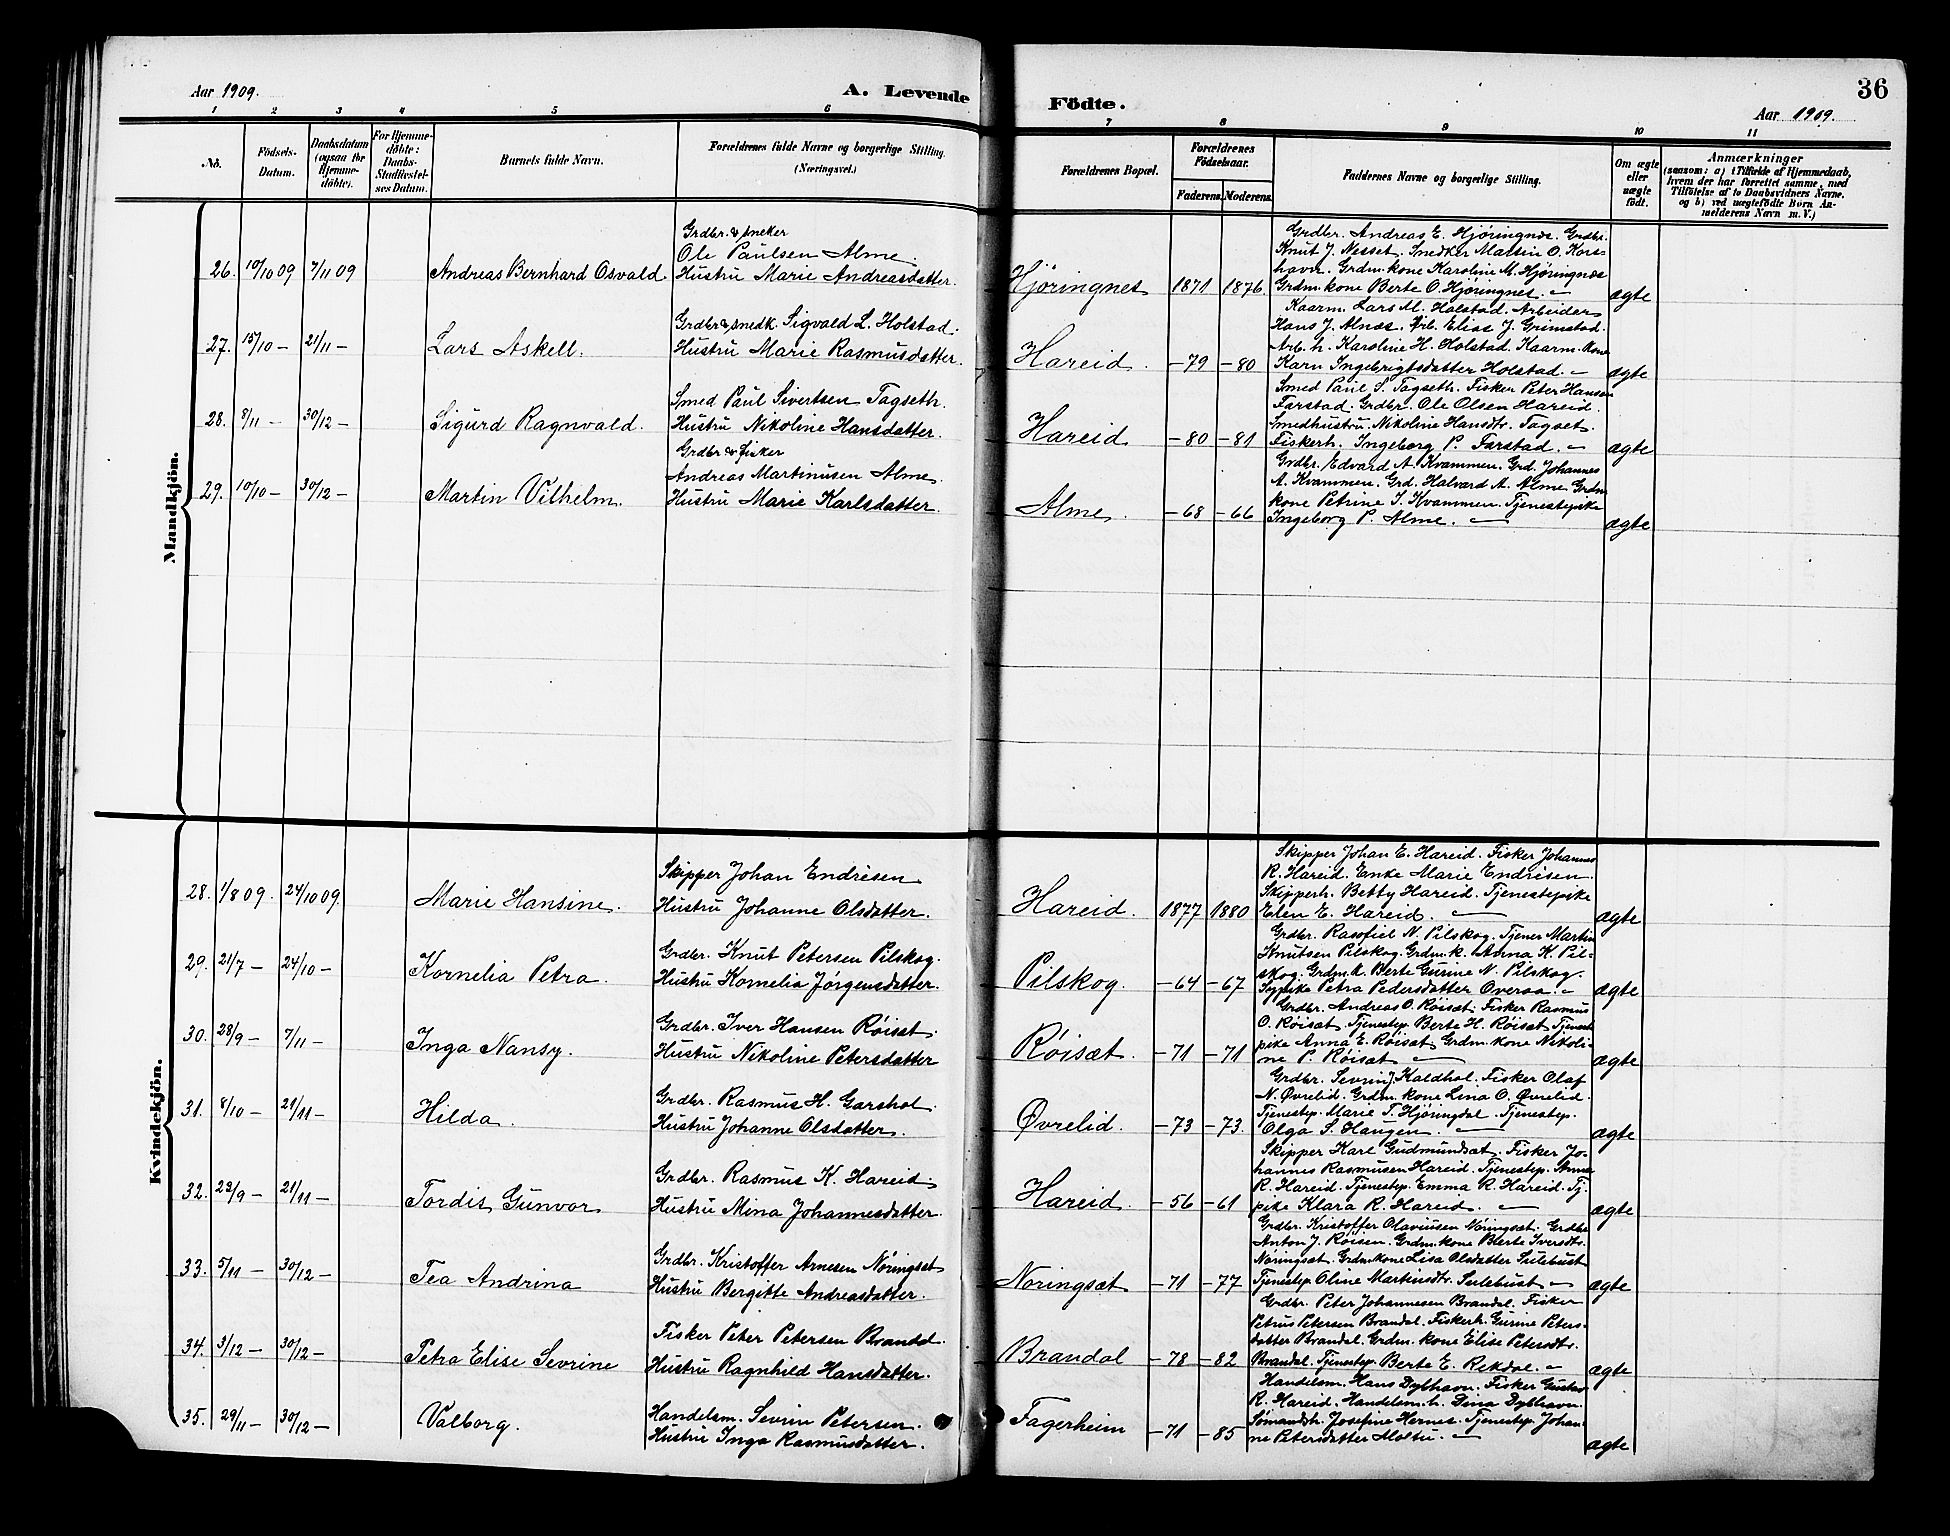 Aar 1909.
A. Levende
Födte.
36
Aar 1909.
1 2 3 4 5 6 7 8 9 10 11
No.
Födsels-
Datum.
Daabsdatum
(ogsaa for
Hjemme-
döbte).
For Hjemme-
döbte:
Daabs-
Stadfæstel-
ses Datum.
Barnets fulde Navn.
Forældrenes fulde Navne og borgerlige Stilling.
(Næringsvei.)
Forældrenes Bopæl.
Forældrenes
Födselsaar.
Faderens. Moderens.
Faddernes Navne og borgerlige Stilling.
Om ægte
eller
uægte
født.
Anmærkninger
(saasom: a) i Tilfælde af Hjemmedaab,
hvem der har forrettet samme, med
Tilföielse af to Daabsvidners Navne,
og b) ved uægtefödte Börn An-
melderens Navn m. V.)
Mandkjön.
26. 10/10 09 7/11 09 Andreas Bernhard Osvald
Grdbr. & sneker
Ole Paulsen Alme.
Hustru Marie Andreasdatter.
Hjøringnes 1871 1876
Grdbr. Andreas E. Hjøringnes. Grdbr.
Knut J. Nesset. Snedker Martin O. Kors-
haver. Grdm.kone Karoline M. Hjøringnes
Grdm.kone Berte O. Hjøringnes. —
ægte
27. 15/10 — 21/11 — Lars Askell.
Grdbr & snedk. Sigvald L. Holstad.
Hustru Marie Rasmusdatter.
Hareid. — 79 — 80
Kaarm. Lars M. Holstad. Arbeider
Hans J. Alnæs. Arb. Elias J. Grimstad.
Arb. h. Karoline H. Holstad. Kaarm. Kone
Karn Ingebrigtsdatter Holstad. —
ægte
28. 8/11 — 30/12 — Sigurd Ragnvald.
Smed Paul Sivertsen Tagseth.
Hustru Nikoline Hansdatter.
Hareid — 80 — 81
Smed Paul S. Tagseth. Fisker Peter Hansen
Farstad. Grdbr. Ole Olsen Hareid.
Smedhustru. Nikoline Hansdtr. Tagset.
Fiskerh. Ingeborg P. Farstad. —
ægte
29. 10/10 — 30/12 — Martin Vilhelm.
Grdbr & fisker
Andreas Martinusen Alme.
Hustru Marie Karlsdatter.
Alme. — 68 — 66
Grdbr. Edvard A. Kvammen. Grd. Johannes
A. Kvammen. Grd. Halvard A. Alme. Grdm
kone Petrine I. Kvammen. Tjenestepike
Ingeborg P. Alme. —
ægte
Kvindekjön.
28. 1/8 09. 24/10 09. Marie Hansine.
Skipper Johan Endresen
Hustru Johanne Olsdatter.
Hareid. 1877 1880
Skipper Johan E. Hareid. Fisker Johannes
R. Hareid. Enke Marie Endresen.
Skipperh. Betty Hareid. Tjenestepike
Elen E. Hareid. —
ægte
29. 21/7 — 24/10 — Kornelia Petra.
Grdbr. Knut Petersen Pilskog.
Hustru Kornelia Jørgensdatter.
Pilskog. — 64 — 67
Grdbr. Rasofiel N. Pilskog. Tjener Martin
Knutsen Pilskog. Grdm.k. Anna K. Pil-
skog. Grdm.k. Berte Gurine N. Pilskog.
Sypike Petra Pedersdatter Overaa. —
ægte
30. 28/9 — 7/11 — Inga Nansy.
Grdbr. Iver Hansen Røiset.
Hustru Nikoline Petersdatter
Røisæt. — 71 — 71
Grdbr. Andreas O. Røisæt. Fisker Rasmus
O. Røisæt. Tjenestep. Berte H. Røisæt. Tjenest
pike Anna E. Røisæt. Grdm.kone Nikoli-
ne P. Røisæt —
ægte
31. 8/10 — 21/11 — Hilda.
Grdbr. Rasmus H. Garshol.
Hustru Johanne Olsdatter.
Øvrelid. — 73 — 73.
Grdbr. Sevrin J. Kaldhol. Fisker Olaf
N. Øvrelid. Grdm.kone Lina O. Øvrelid.
Tjenestep. Marie T. Hjøringdal. Tjenestep.
Olga S. Haugen. —
ægte
32. 22/9 — 21/11 — Tordis Gunvor
Grdbr. Rasmus K. Hareid
Hustru Mina Johannesdatter.
Hareid. — 56 — 61
Skipper Karl Gudmundsæt. Fisker Jo-
hannes Rasmusen Hareid. Tjenestep. Anna
R. Hareid. Tjenestep. Emma R. Hareid. Tj.
pike Klara R. Hareid. —
ægte
33. 5/11 — 30/12 — Tea Andrina
Grdbr. Kristoffer Arnesen Nøringset
Hustru Bergitte Andreasdatter.
Nøringsæt — 71 — 77
Grdbr. Kristoffer Olaviusen Nøringsæt. Grdbr
Anton J. Røisen. Grdm.kone Berte Iversdtr.
Nøringsæt. Grdm.kone Lisa Olsdatter Sulebust
Tjenestep. Oline Martinsdtr. Sulebust —
ægte
34. 3/12 — 30/12 — Petra Elise Sevrine
Fisker Peter Petersen Brandal.
Hustru Ragnhild Hansdatter.
Brandal — 78 — 82
Grdbr. Peter Johannesen Brandal. Fisker
Petrus Petersen Brandal. Fiskerh. Gurine Peters-
datter Brandal. Grdm.kone Elise Petersdtr.
Brandal. Tjenestep. Berte E. Rekdal. —
ægte
35. 29/11 — 30/12 — Valborg.
Handelsm. Sevrin Petersen.
Hustru Inga Rasmusdatter.
Fagerheim — 71 — 85
Handelsm. Hans Dybhavn. Fisker Gustav
R. Hareid. Handelsm.h. Dina Dybhavn.
Sømandsh. Josefine Hernes. Tjenestep. Johan-
ne Petersdatter Moltu. —
ægte